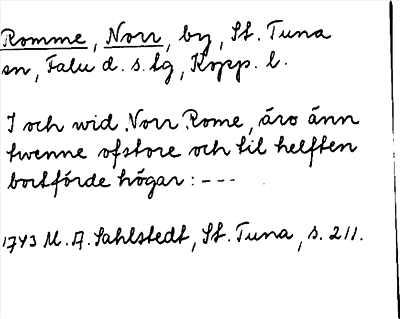 Romme, Norr, by, St. Tuna
sn, Falu d. s. lg, Kopp. l.
I och wid Norr Rome, äro änn
twenne ofstore och til helften
bortförde högar: ---
1743 M. A. Sahlstedt, St. Tuna, s. 211.